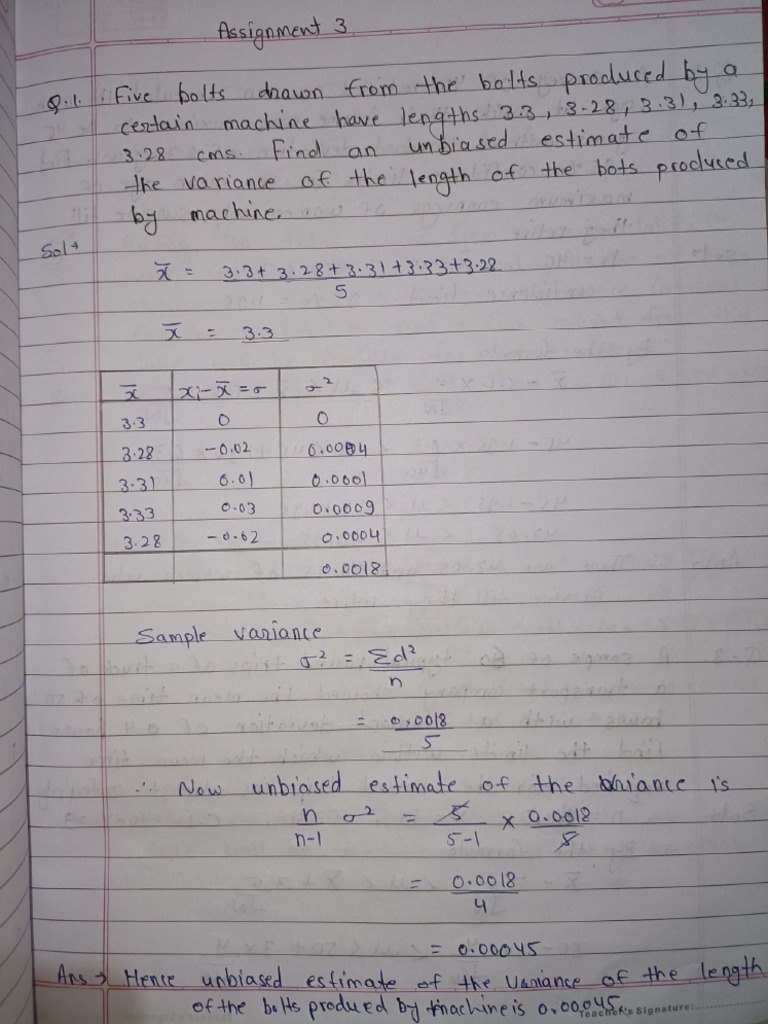 Assignment 3
Q.1. Five bolts drawn from the bolts produced by a
certain machine have lengths 3.3, 3.28, 3.31, 3.33,
3.28 cms. Find an unbiased estimate of
the variance of the length of the bots produced
by machine.
Sol→
x̄ = 3.3 + 3.28 + 3.31 + 3.33 + 3.28
5
x̄ = 3.3
x̄ xᵢ - x̄ = σ σ²
3.3 0 0
3.28 -0.02 0.0004
3.31 0.01 0.0001
3.33 0.03 0.0009
3.28 -0.02 0.0004
0.0018
Sample variance
σ² = Σd²
n
= 0.0018
5
∴ Now unbiased estimate of the variance is
n σ² = 5 × 0.0018
n-1 5-1 5
= 0.0018
4
= 0.00045
Ans → Hence unbiased estimate of the variance of the length
of the bolts produced by machine is 0.00045.
Teacher's Signature: